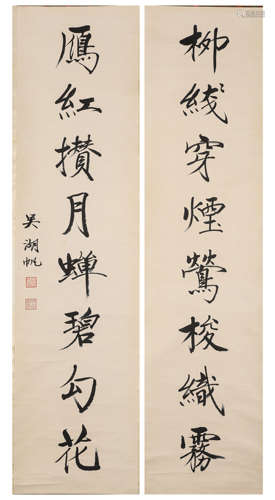 柳綫穿煙鶯梭織霧
鴈紅攢月蟬碧勾花
吳湖帆